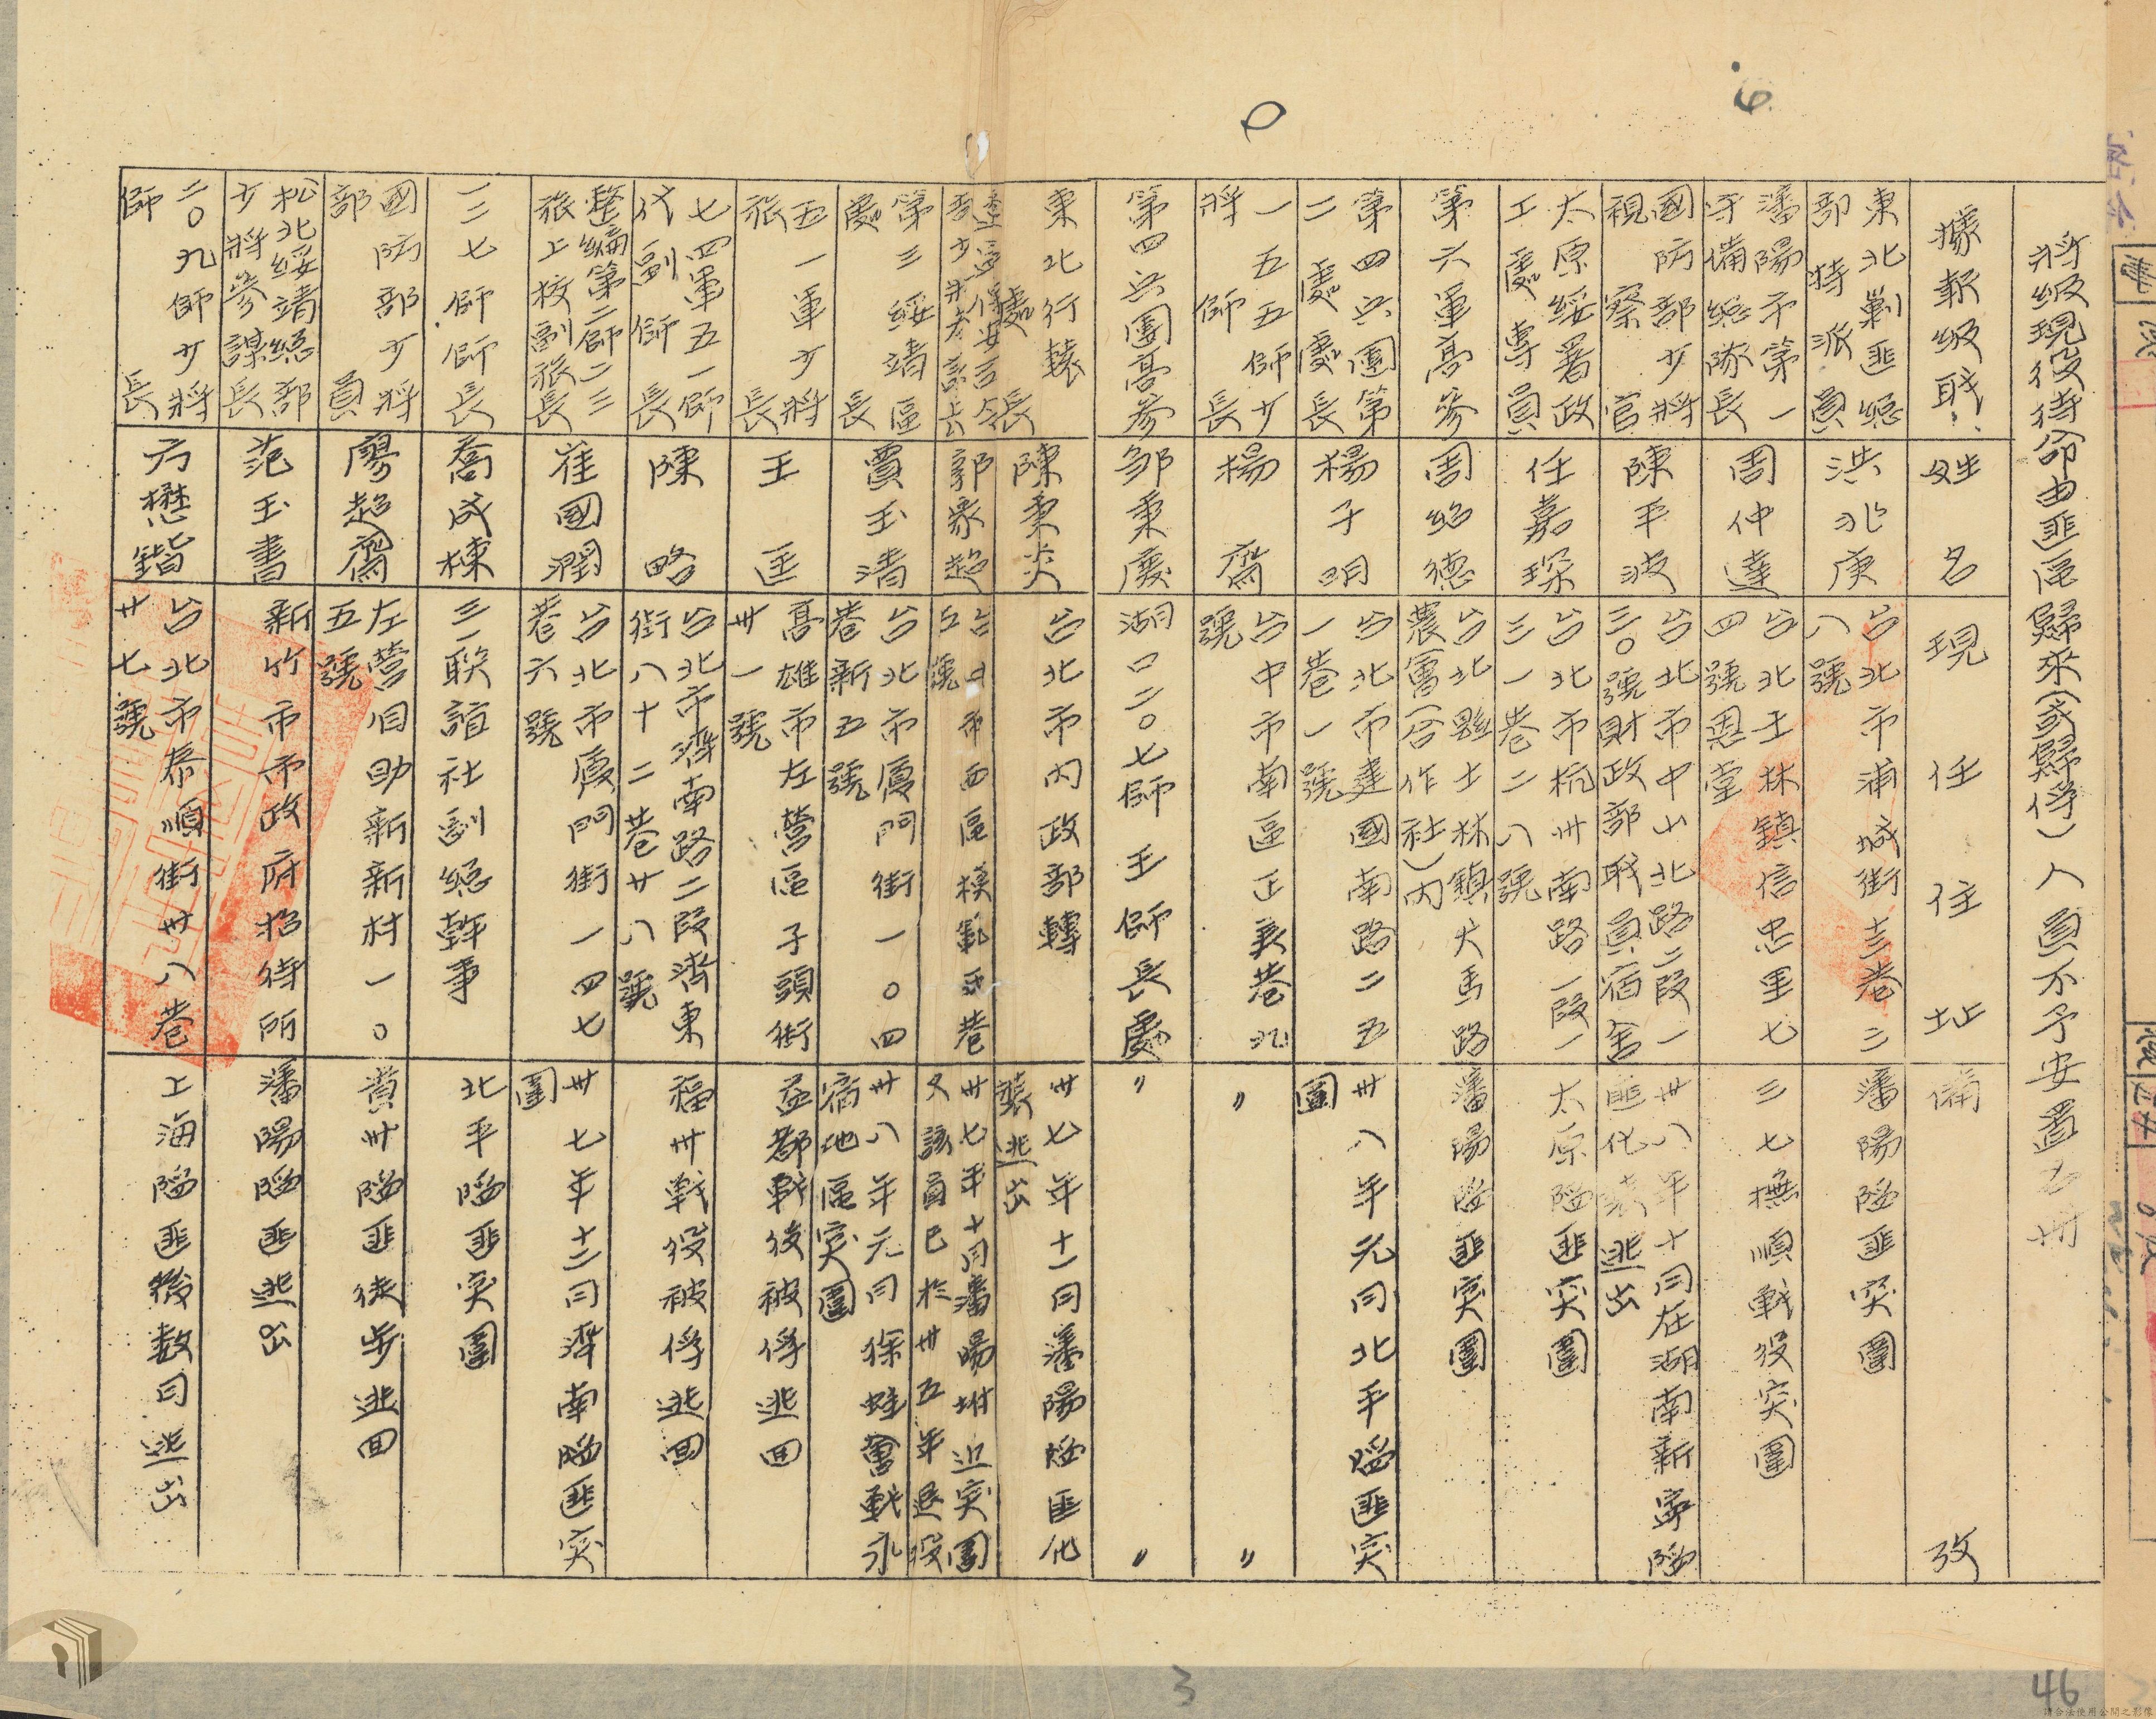 將級現役待命由匪區歸來(或歸俘)人員不予安置名册
據報級職
姓名
現任住址
備攷
東北剿匪總部特派員
洪兆庚
台北市浦城街十三巷二八號
瀋陽陷匪突圍
瀋陽市第一守備總隊長
周仲達
台北士林鎮信忠里七四號恩堂
三七撫順戰役突圍
國防部少將視察官
陳平波
台北市中山北路二段一三〇號財政部職員宿舍
卅八年十月在湖南新寧陷匪化裝逃出
太原綏署政工處專員
任嘉琛
台北市杭州南路一段一三一巷二八號
太原陷匪突圍
第六軍高參
周紹德
台北縣士林鎮大馬路農會(合作社)內
瀋陽陷匪突圍
第四兵團第二處處長
楊子明
台北市建國南路二五一巷一號
卅八年元月北平陷匪突圍
一五五師少將師長
楊齋
台中市南區正義巷九號
〃 〃
第四兵團高參
鄒秉慶
湖口二〇七師王師長處
〃 〃
東北行轅處長
陳秉炎
台北市內政部轉
卅七年十一月瀋陽陷匪化裝逃出
郭象超
台中市西區模範西巷五號
卅七年十月瀋陽坿近突圍又該員已於卅五年退役
第三綏靖區處長
賈玉清
台北市廈門街一〇四巷新五號
卅八年元月徐蚌會戰永宿地區突圍
五一軍少將旅長
王匡
高雄市左營區子頭街卅一號
益都戰役被俘逃回
七四軍五一師代副師長
陳略
台北市濟南路二段濟東街八十二巷廿八號
福州戰役被俘逃回
整編第二師二三旅上校副旅長
崔國潤
台北市廈門街一四七巷六號
卅七年十二月濟南陷匪突圍
一二七師師長
喬成棟
三一聯誼社副總幹事
北平陷匪突圍
國防部少將部員
廖超齋
左營自助新新村一〇五號
貴州陷匪徒步逃回
松北綏靖總部少將參謀長
范玉書
新竹市市政府招待所
瀋陽陷匪逃出
二〇九師少將師長
方懋鍇
台北市泰順街卅八巷廿七號
上海陷匪後數日逃出
3
46
請合法使用公開之影像